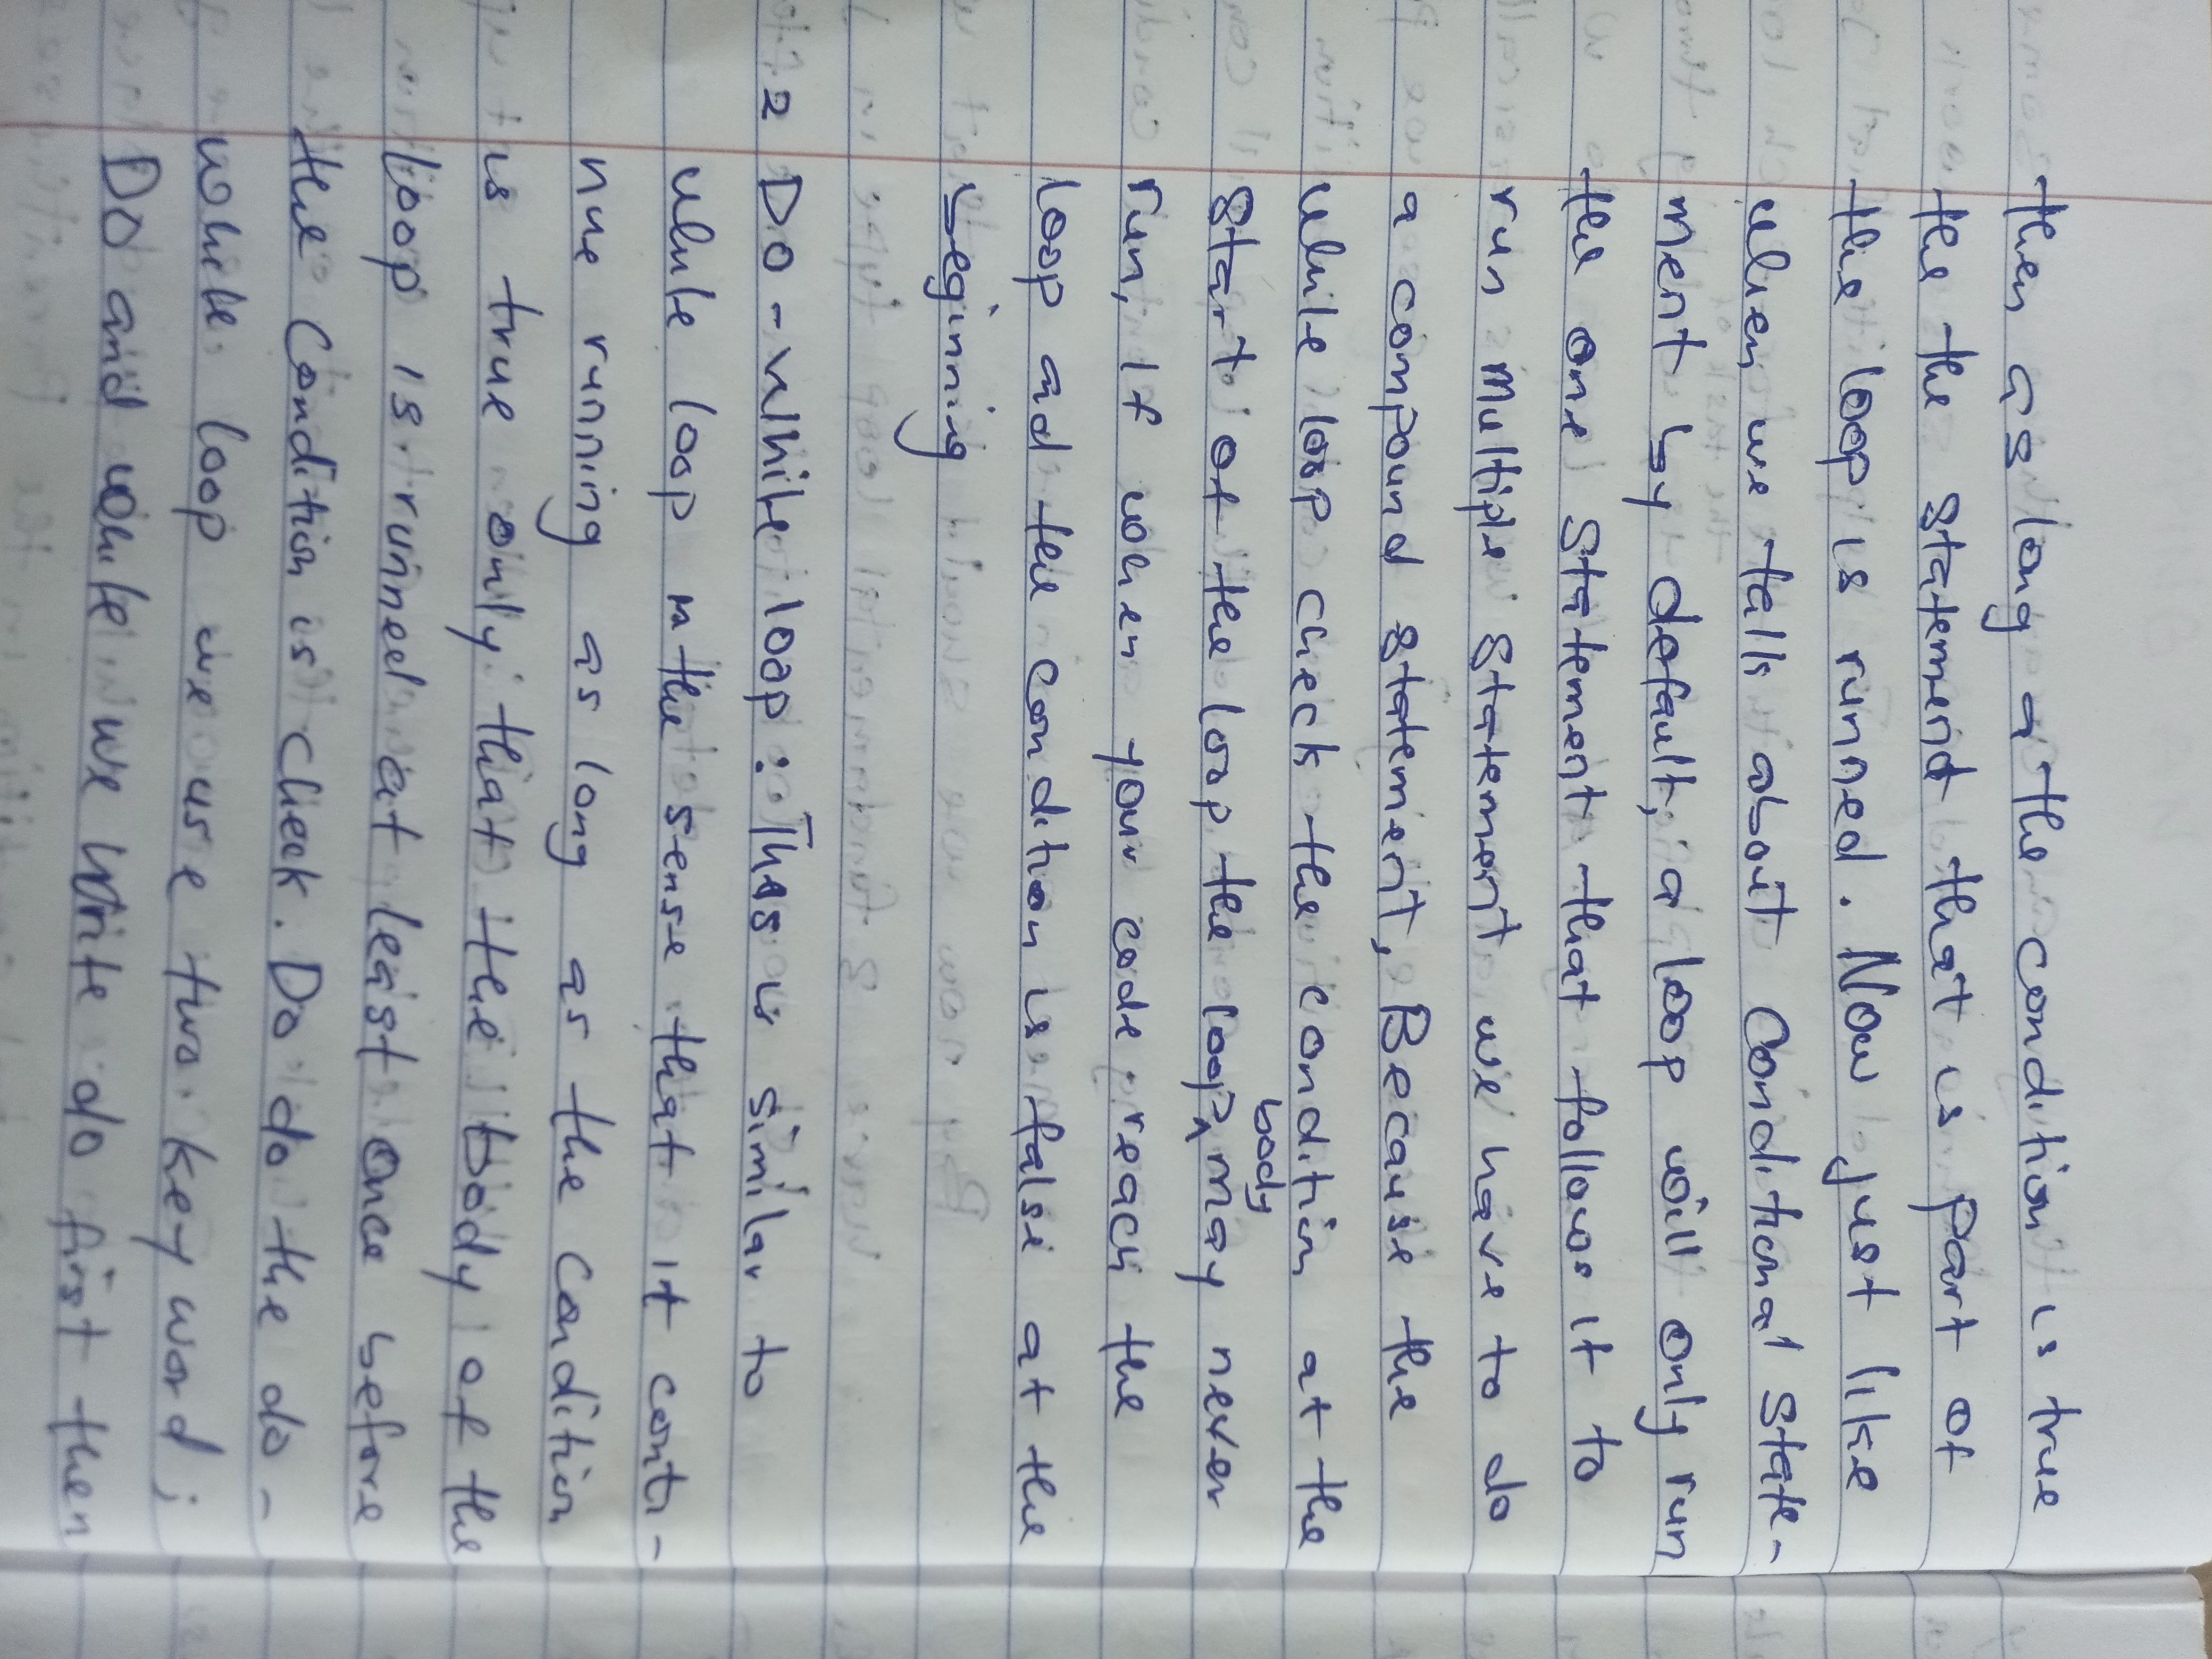 then as long a the condition is true
the the statement that is part of
the loop is runned. Now just like
when we talk about Conditional State-
ment by default, a loop will only run
the one statement that follows it to
run multiple statement we have to do
a compound statement, Because the
while loop check the condition at the
start of the loop the loop body may never
run, If when your code reach the
loop and the condition is false at the
beginning
2 Do-While loop: This is similar to
while loop in the sense that it conti-
nue running as long as the condition
is true only that the body of the
loop is runned at least once before
the condition is check. Do do the do-
while loop we use two key word;
Do and while we write do first then